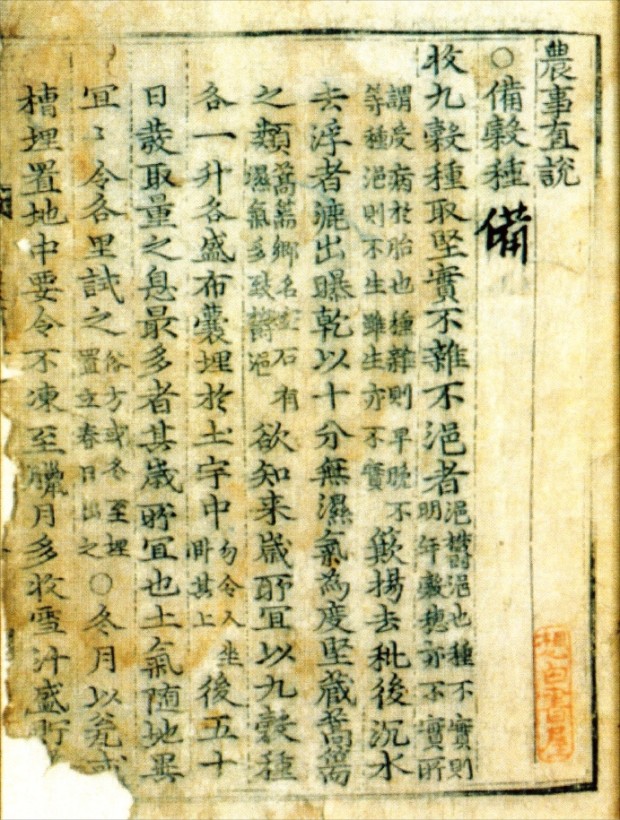 農事直說
○備穀種 備
收九穀種取堅實不雜不浥者浥欝浥也種不實則明年穀穗亦不實所
謂受病於胎也種雜則早晚不等種浥則不生雖生亦不實簸揚去秕後沉水
去浮者漉出曝乾以十分無濕氣為度堅藏蒿篅
之類蒿篅鄉名空石有濕氣多致欝浥欲知来歲所宜以九穀種
各一升各盛布囊埋於土宇中勿令人坐卧其上後五十
日發取量之息最多者其歲所宜也土氣隨地異
宜〻令各里試之俗方或冬至埋置立春日出之○冬月以瓮或
槽埋置地中要令不凍至臘月多收雪汁盛貯
想白書屋